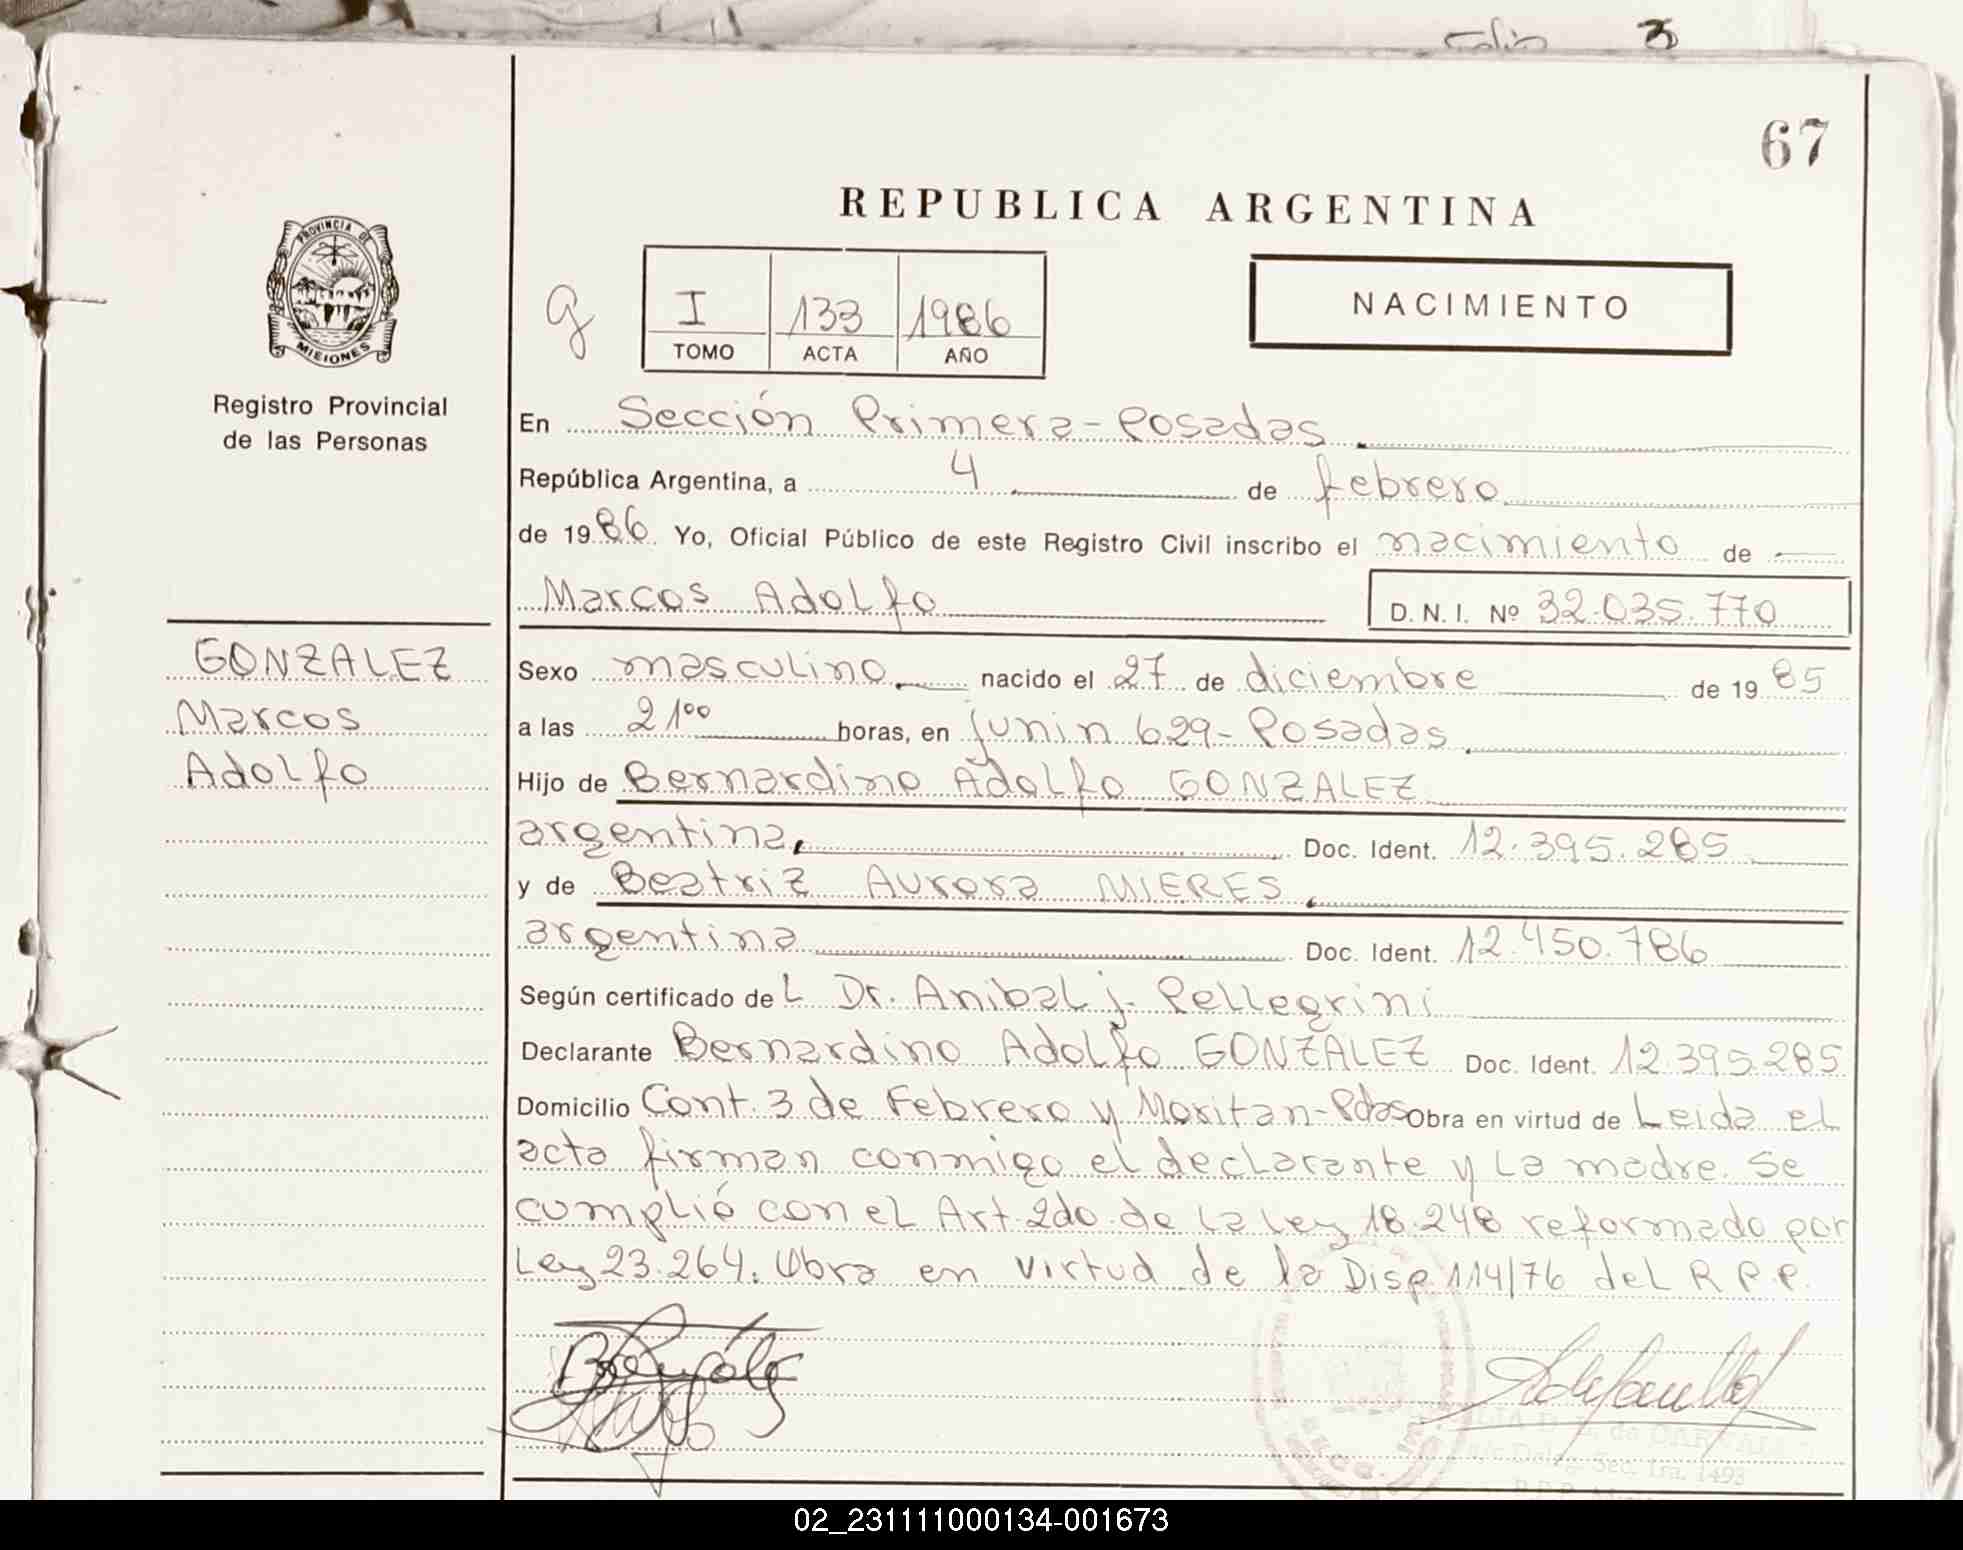 Folio 3
67
REPUBLICA ARGENTINA
PROVINCIA DE
MISIONES
Registro Provincial
de las Personas
g
I 133 1986
TOMO ACTA AÑO
NACIMIENTO
En Sección Primera - Posadas
República Argentina, a 4 de febrero
de 1986 Yo, Oficial Público de este Registro Civil inscribo el nacimiento de
Marcos Adolfo D. N. I. Nº 32.035.770
GONZALEZ
Marcos
Adolfo
Sexo masculino nacido el 27 de diciembre de 1985
a las 21⁰⁰ horas, en Junin 629 - Posadas
Hijo de Bernardino Adolfo GONZALEZ
argentina, Doc. Ident. 12.395.285
y de Beatriz Aurora MIERES,
argentina Doc. Ident. 12.450.786
Según certificado del Dr. Anibal J. Pellegrini
Declarante Bernardino Adolfo GONZALEZ Doc. Ident. 12.395.285
Domicilio Cont. 3 de Febrero y Moritan - Pdas Obra en virtud de Leida el
acta firman conmigo el declarante y la madre. Se
cumplió con el Art. 2do. de la Ley 18.248 reformado por
Ley 23.264. Obra en virtud de la Disp. 114/76 del R.P.P.
de CARVALLO
Deleg. Sec. 1ra. 1493
02_231111000134-001673